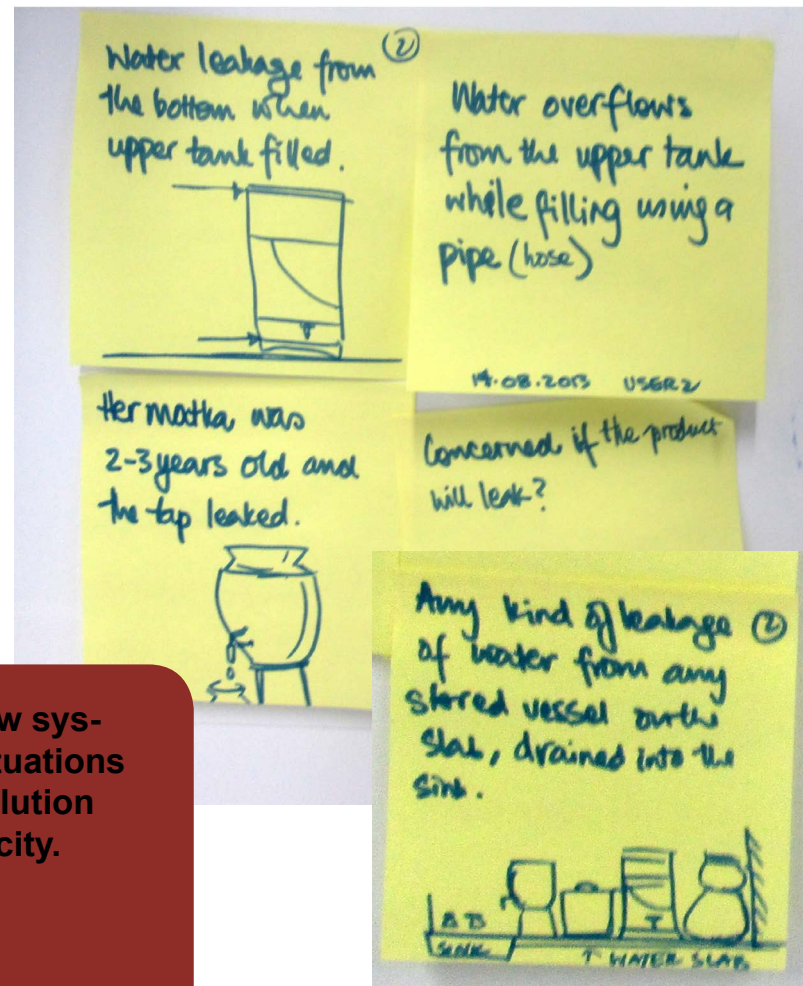 Water leakage from
the bottom when
upper tank filled.
2
Water overflows
from the upper tank
while filling using a
pipe (hose)
14.08.2013 USER2
Her matka was
2-3 years old and
the tap leaked.
Concerned if the product
will leak?
Any kind of leakage 2
of water from any
stored vessel on the
slab, drained into the
sink.
SINK
↑ WATER SLAB
w sys-
tuations
lution
city.